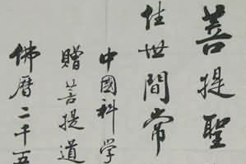 菩提聖
住世間常
中國科學
贈菩提道
佛曆二千五